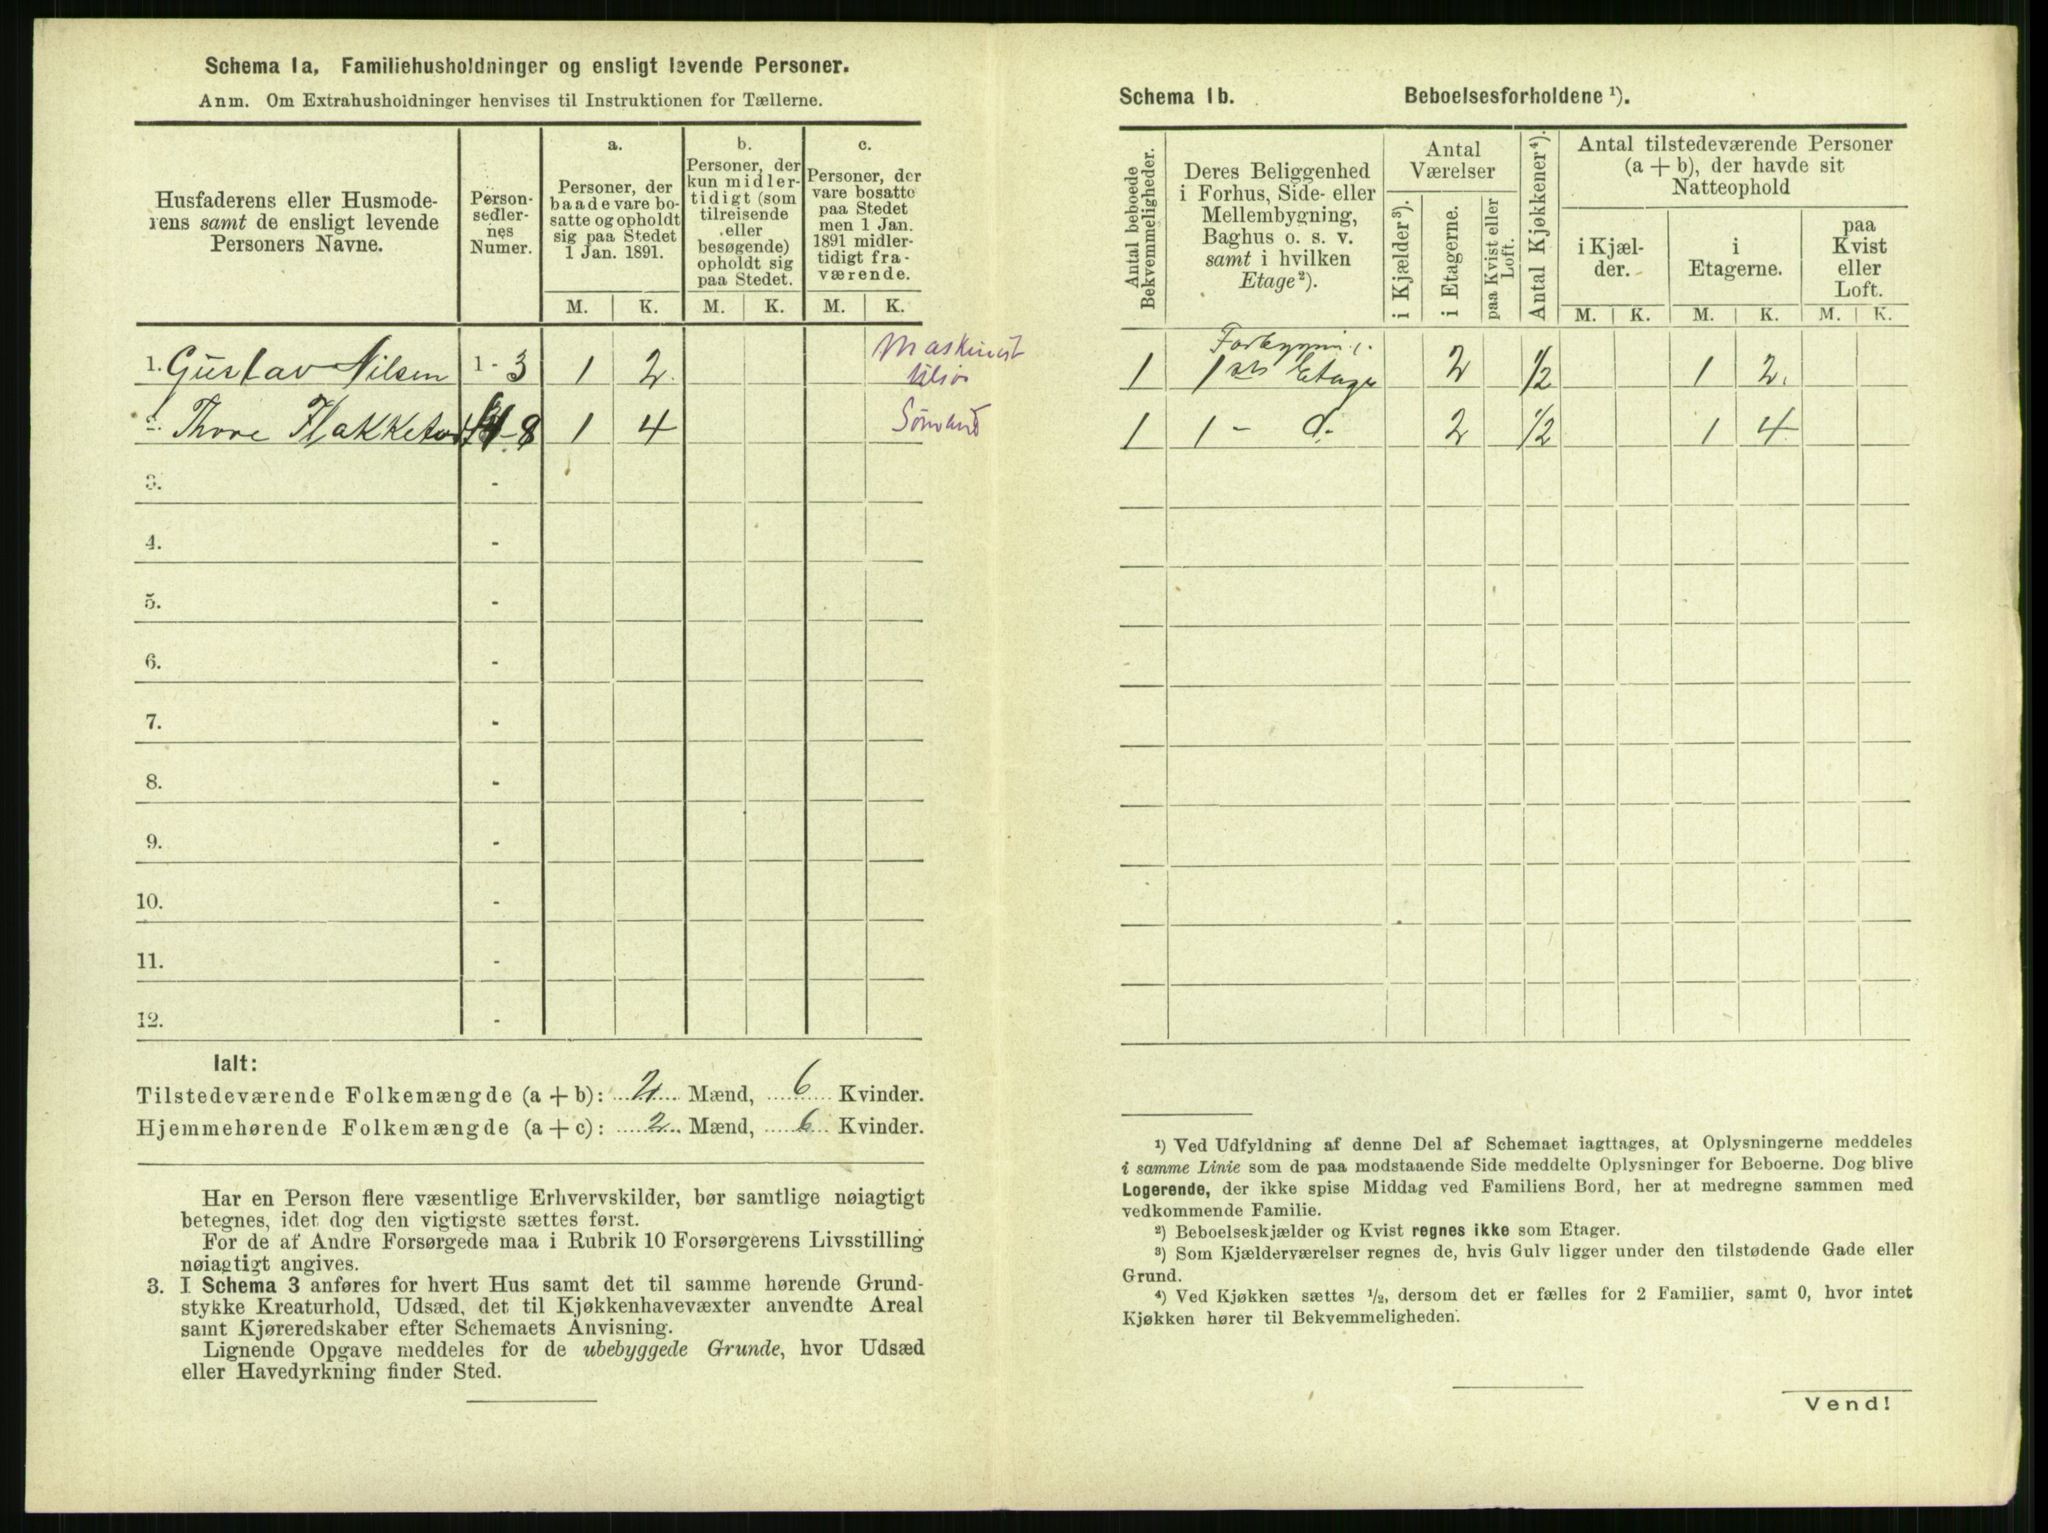 Schema 1a, Familiehusholdninger og ensligt levende Personer.
Anm. Om Extrahusholdninger henvises til Instruktionen for Tællerne.
Husfaderens eller Husmode-
rens samt de ensligt levende
Personers Navne.
Person-
sedler-
nes
Numer.
a.
Personer, der
baade vare bo-
satte og opholdt
sig paa Stedet
1 Jan. 1891.
b.
Personer, der
kun midler-
tidigt (som
tilreisende
eller
besøgende)
opholdt sig
paa Stedet.
c.
Personer, der
vare bosatte
paa Stedet
men 1 Jan.
1891 midler-
tidigt fra-
værende.
M. K. M. K. M. K.
1. Gustav Nilsen 1 - 3 1 2 Maskinist
Thore 8 1 4
3. -
4. -
5. -
6. -
7. -
8. -
9. -
10. -
11. -
12. -
Ialt:
Tilstedeværende Folkemængde (a + b): 2 Mænd, 6 Kvinder.
Hjemmehørende Folkemængde (a + c): 2 Mænd, 6 Kvinder.
Har en Person flere væsentlige Erhvervskilder, bør samtlige nøiagtigt
betegnes, idet dog den vigtigste sættes først.
For de af Andre Forsørgede maa i Rubrik 10 Forsørgerens Livsstilling
nøiagtigt angives.
3. I Schema 3 anføres for hvert Hus samt det til samme hørende Grund-
stykke Kreaturhold, Udsæd, det til Kjøkkenhavevæxter anvendte Areal
samt Kjøreredskaber efter Schemaets Anvisning.
Lignende Opgave meddeles for de ubebyggede Grunde, hvor Udsæd
eller Havedyrkning finder Sted.
Schema 1b. Beboelsesforholdene ¹).
Antal beboede
Bekvemmeligheder.
Deres Beliggenhed
i Forhus, Side- eller
Mellembygning,
Baghus o. s. v.
samt i hvilken
Etage²).
Antal
Værelser
i Kjælder³).
i Etagerne.
paa Kvist eller
Loft.
Antal Kjøkkener⁴).
Antal tilstedeværende Personer
(a + b), der havde sit
Natteophold
i Kjæl-
der.
i
Etagerne.
paa
Kvist
eller
Loft.
M. K. M. K. M. K.
1 1ste Etage 2 1/2 1 2.
1 1 - d. 2 1/2 1 4
¹) Ved Udfyldning af denne Del af Schemaet iagttages, at Oplysningerne meddeles
i samme Linie som de paa modstaaende Side meddelte Oplysninger for Beboerne. Dog blive
Logerende, der ikke spise Middag ved Familiens Bord, her at medregne sammen med
vedkommende Familie.
²) Beboelseskjælder og Kvist regnes ikke som Etager.
³) Som Kjælderværelser regnes de, hvis Gulv ligger under den tilstødende Gade eller
Grund.
⁴) Ved Kjøkken sættes ¹/₂, dersom det er fælles for 2 Familier, samt 0, hvor intet
Kjøkken hører til Bekvemmeligheden.
Vend!